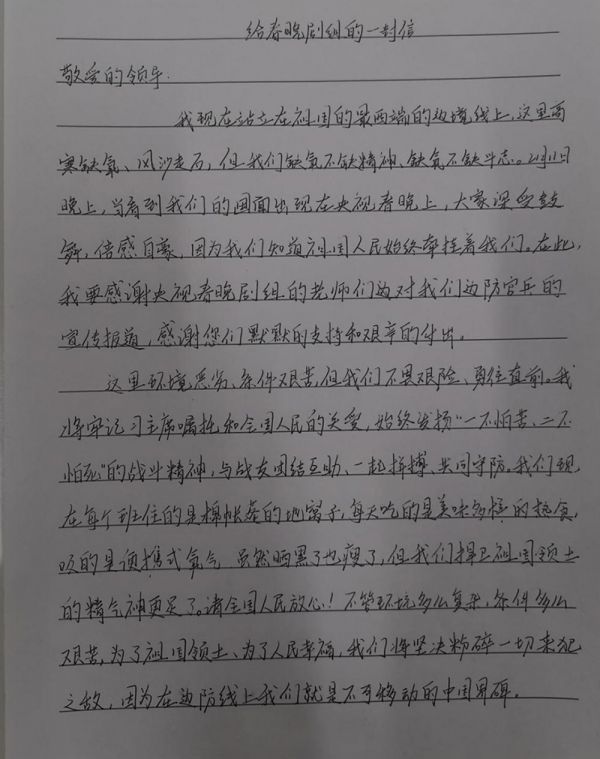 给春晚剧组的一封信
敬爱的领导：
我现在站立在祖国的最西端的边境线上，这里高
寒缺氧、风沙走石，但我们缺氧不缺精神、缺氧不缺斗志。2月11日
晚上，当看到我们的画面出现在央视春晚上，大家深受鼓
舞，倍感自豪，因为我们知道祖国人民始终牵挂着我们。在此，
我要感谢央视春晚剧组的老师们对我们边防官兵的
宣传报道，感谢您们默默的支持和艰辛的付出。
这里环境恶劣、条件艰苦，但我们不畏艰险、勇往直前。我
将牢记习主席嘱托和全国人民的关爱，始终发扬“一不怕苦、二不
怕死”的战斗精神，与战友团结互助、一起拼搏、共同守防。我们现
在每个班住的是棉帐篷的地窝子，每天吃的是美味多样的热食，
吸的是便携式氧气 虽然晒黑了也瘦了，但我们捍卫祖国领土
的精气神更足了。请全国人民放心！不管环境多么复杂，条件多么
艰苦，为了祖国领土、为了人民幸福，我们将坚决粉碎一切来犯
之敌，因为在边防线上我们就是不可移动的中国界碑。